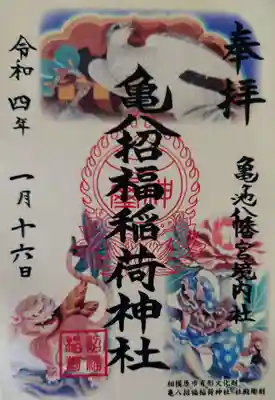 奉拝
亀ヶ池八幡宮境内社
亀八招福稲荷神社
令和四年
一月十六日
相模原市有形文化財
亀八招福稲荷神社 社殿彫刻